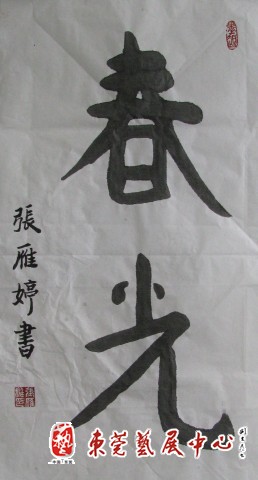 春光
張雁婷書
东莞藝展中心